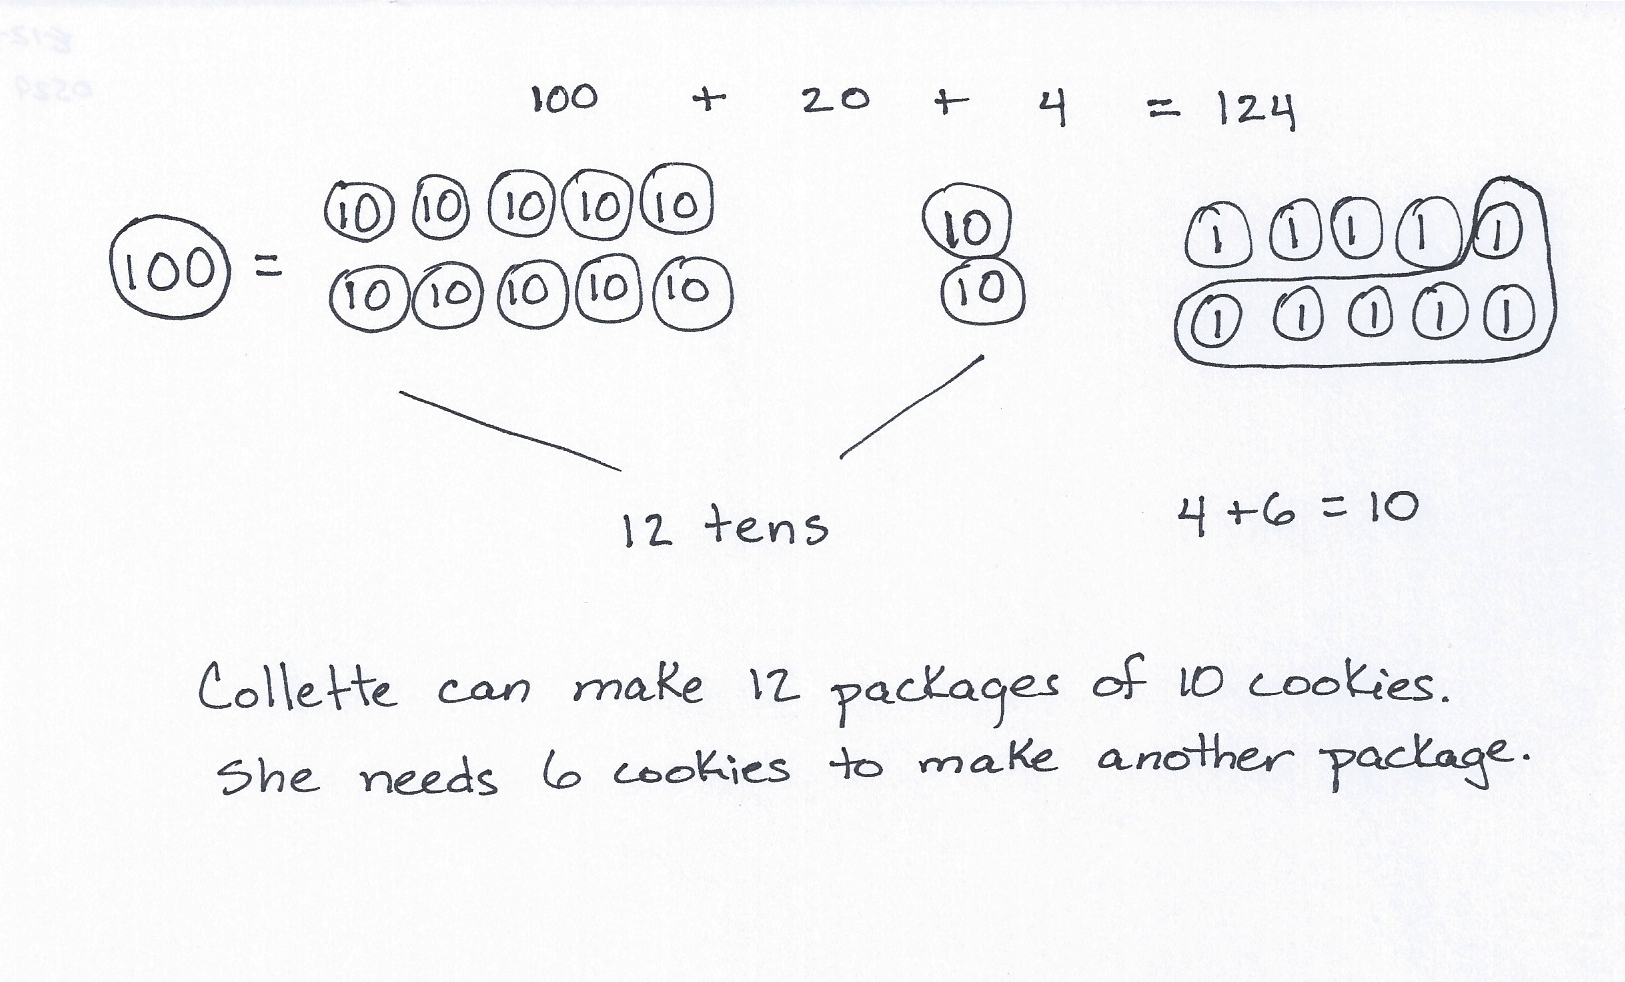 100 + 20 + 4 = 124
10 10 10 10 10 10 1 1 1 1 1
100 = 10 10 10 10 10 10 1 1 1 1 1
12 tens 4 + 6 = 10
Collette can make 12 packages of 10 cookies.
She needs 6 cookies to make another package.